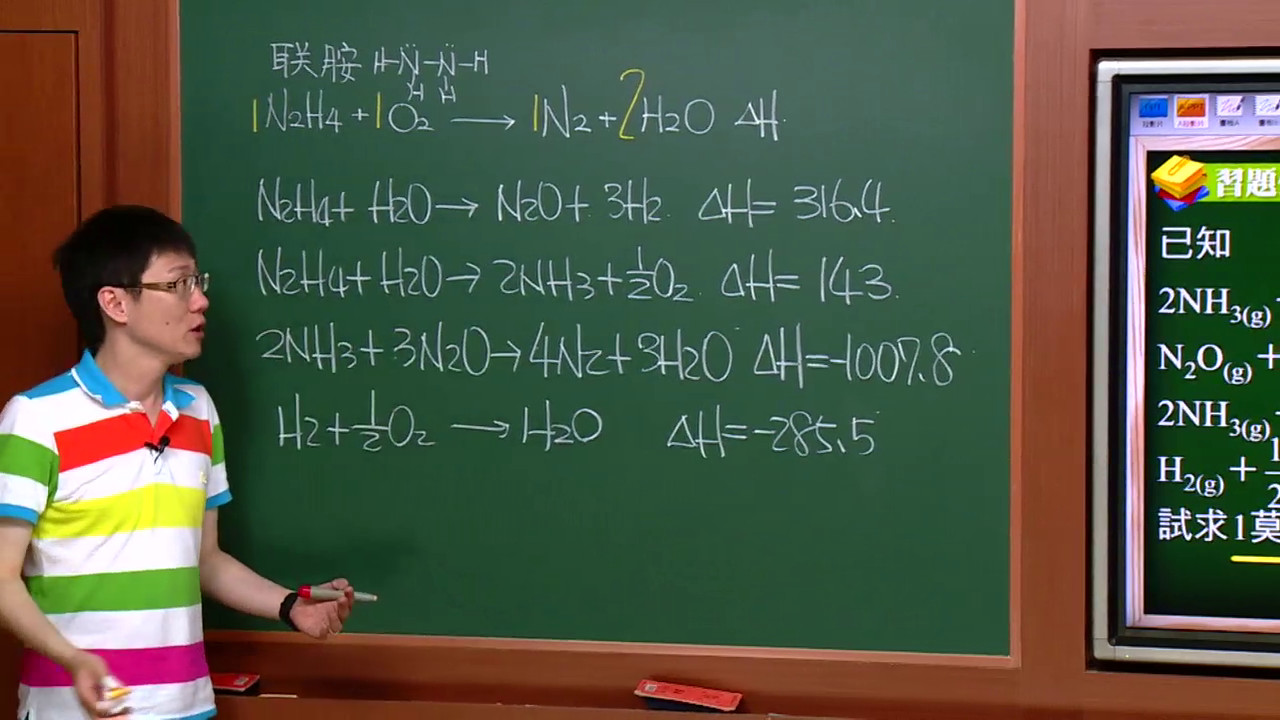 联胺 H-N̈-N̈-H
H H
1N₂H₄ + 1O₂ → 1N₂ + 2H₂O ΔH
N₂H₄ + H₂O → N₂O + 3H₂ ΔH = 316.4
N₂H₄ + H₂O → 2NH₃ + ½O₂ ΔH = 143
2NH₃ + 3N₂O → 4N₂ + 3H₂O ΔH = -1007.8
H₂ + ½O₂ → H₂O ΔH = -285.5
習題
已知
2NH₃(g)
N₂O(g) +
2NH₃(g)
H₂(g) + 1/2
試求1莫